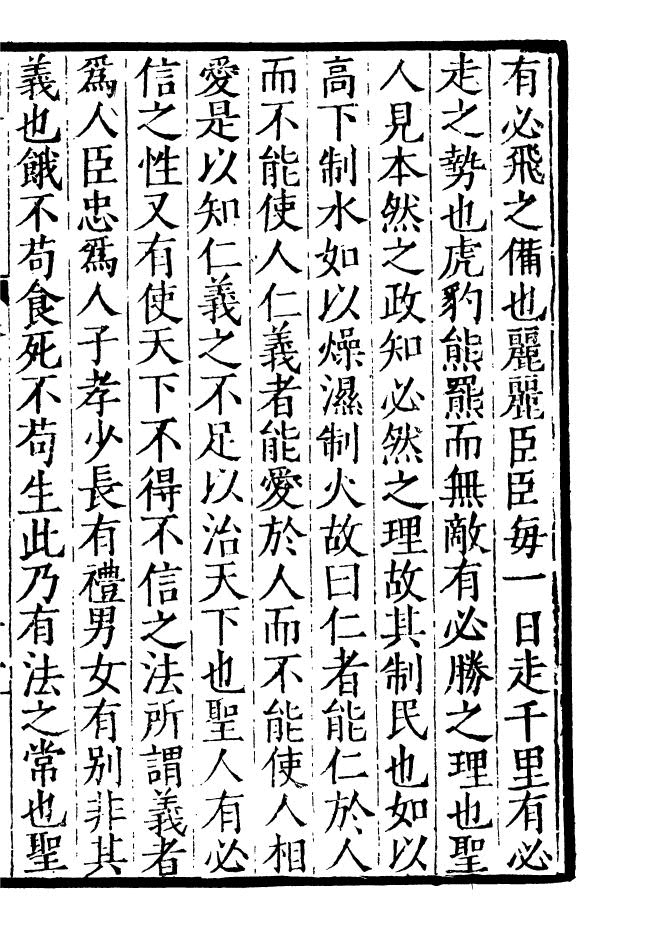 有必飛之備也麗麗臣臣每一日走千里有必
走之勢也虎豹熊羆而無敵有必勝之理也聖
人見本然之政知必然之理故其制民也如以
高下制水如以燥濕制火故曰仁者能仁於人
而不能使人仁義者能愛於人而不能使人相
愛是以知仁義之不足以治天下也聖人有必
信之性又有使天下不得不信之法所謂義者
爲人臣忠爲人子孝少長有禮男女有別非其
義也餓不苟食死不苟生此乃有法之常也聖